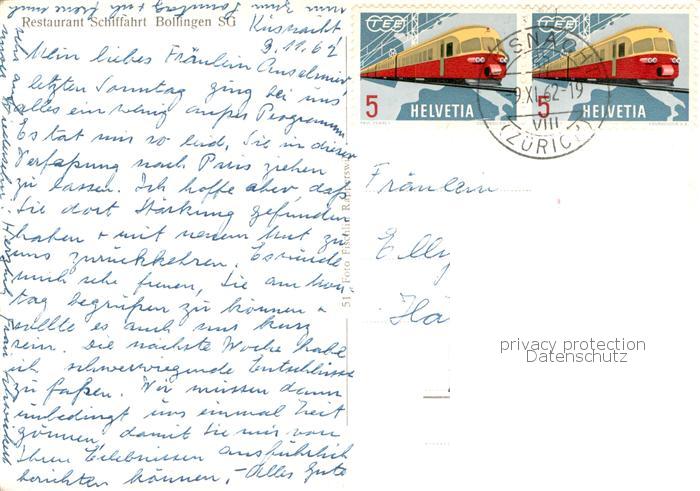 Restaurant Schiffahrt Bollingen SG
Küsnacht
9.11.62
Mein liebes Fräulein Anselmier
letzten Sonntag ging bei uns
alles ein wenig außer Programm.
Es tat mir so leid, Sie in dieser
Verfaßung nach Paris ziehen
zu lassen. Ich hoffe aber, daß
Sie dort Stärkung gefunden
haben + mit neuem Mut zu
uns zurückkehren. Es würde
mich sehr freuen, Sie am Mon-
tag begrüßen zu können +
sollte es auch nur kurz
sein. Die nächste Woche habe
ich schwerwiegende Entschlüsse
zu faßen. Wir müssen dann
unbedingt uns einmal Zeit
gönnen, damit Sie mir von
Ihren Erlebnissen ausführlich
berichten können, - Alles Gute
51 Foto Fischlin Rapperswil
TEE
5
HELVETIA
TEE
5
HELVETIA
9.XI.62-19
VIII
(ZÜRICH)
Fräulein
Elly
Hä
privacy protection
Datenschutz